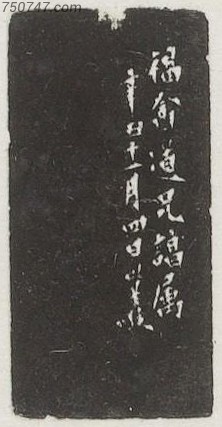 750747.com
福道兄属
辛丑十一月四日